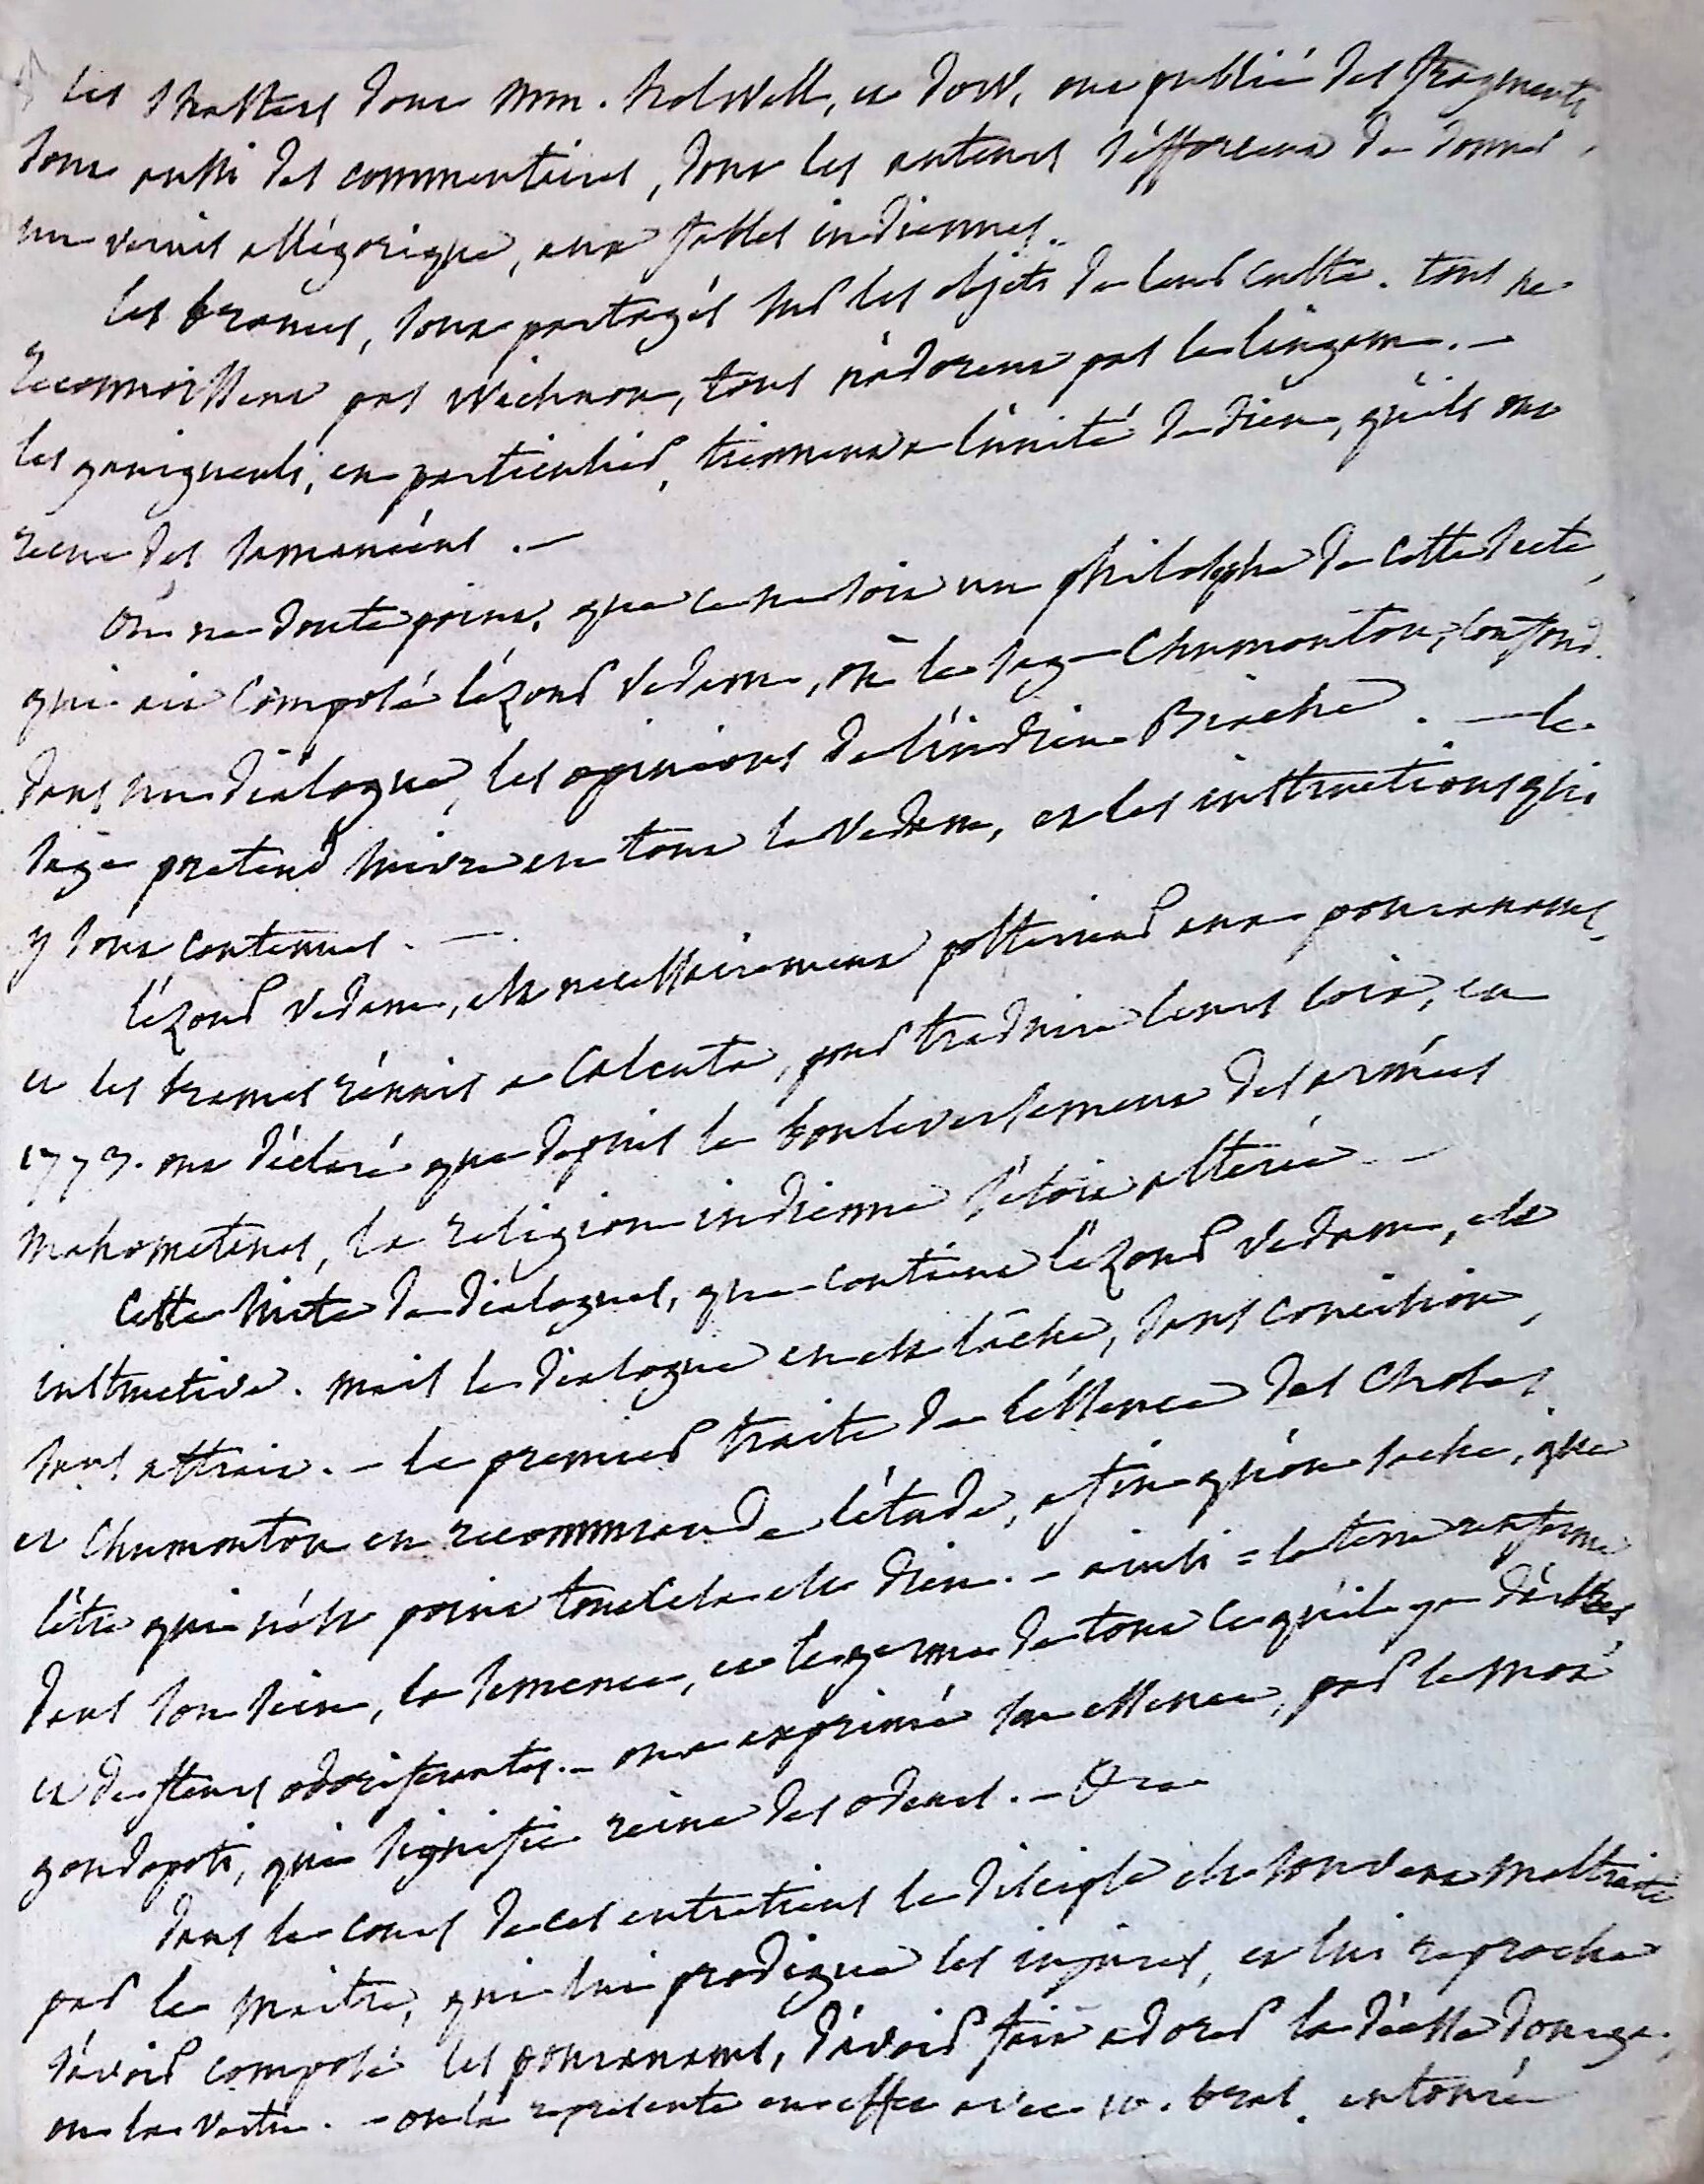 les shasters dont mm. holwell, et dow, ont publié des fragments
sont aussi des commentaires, dont les auteurs s'éfforcent de donner,
un vernis allégorique, aux fables indiennes.
les brames, sont partagés sur les objets de leur culte. tous ne
reconnoissent pas wichnou, tous n'adorent pas le lingam. -
les ganigueuls, en particulier, tiennent a l'unité de dieu, qu'ils ont
recue des samanéens. -
On ne doute point, que ce ne soit un philosophe de cette secte,
qui ait composé l'ézour vedam, où le sage Chumontou, confond
dans un dialogue, les opinions de l'indien Biache. - le
sage pretend suivre en tout le vedam, et les instructions qui
y sont contenues. -
l'ézour vedam, est necessairement postérieur aux pouranams,
et les brames réunis a Calcuta, pour traduire leurs loix, en
1773. ont déclaré que depuis le bouleversement des armées
mahometanes, la religion indienne s'étoit altérée. -
Cette suite de dialogues, que contient l'ézour vedam, est
instructive. mais le dialogue en est lâche, sans concision,
sans attrait. - le premier traite de l'éssence des choses
et Chumontou en recommande l'étude, afin qu'on sache, que
l'être qui n'est point tout cela est dieu. - ainsi = la terre renferme
dans son sein, la semence, et le germe de tout ce qu'il y a d'
et de fleurs odoriferantes. - on a exprimé son essence, par le mot
gondopoti, qui signifie reine des odeurs. -
dans le cours de ces entretiens le disciple est souvent maltraité
par le maitre, qui lui prodigue les injures, et lui reproche
d'avoir composé les pouranams, d'avoir fait adorer la déesse dourga,
ou la vertu. - on la represente en effet avec 10. bras. entourée